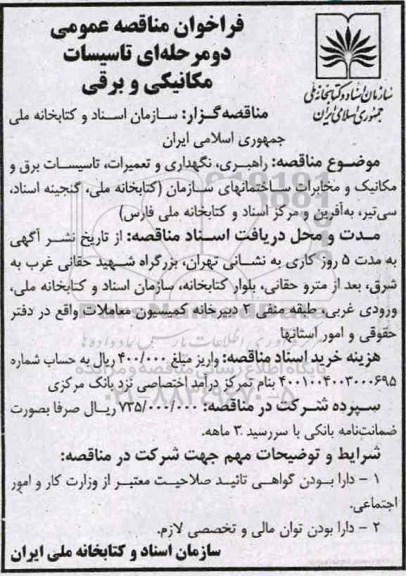 سازمان اسناد و کتابخانه ملی
جمهوری اسلامی ایران
فراخوان مناقصه عمومی
دو مرحله‌ای تاسیسات
مکانیکی و برقی
مناقصه‌گزار: سازمان اسناد و کتابخانه ملی
جمهوری اسلامی ایران
موضوع مناقصه: راهبری، نگهداری و تعمیرات، تاسیسات برق و
مکانیک و مخابرات ساختمانهای سازمان (کتابخانه ملی، گنجینه اسناد،
سی‌تیر، به‌آفرین و مرکز اسناد و کتابخانه ملی فارس)
مدت و محل دریافت اسناد مناقصه: از تاریخ نشر آگهی
به مدت ۵ روز کاری به نشانی تهران، بزرگراه شهید حقانی غرب به
شرق، بعد از مترو حقانی، بلوار کتابخانه، سازمان اسناد و کتابخانه ملی،
ورودی غربی، طبقه منفی ۲ دبیرخانه کمیسیون معاملات واقع در دفتر
حقوقی و امور استانها
هزینه خرید اسناد مناقصه: واریز مبلغ ۴۰۰/۰۰۰ ریال به حساب شماره
۴۰۰۱۰۰۴۰۰۳۰۰۰۶۹۵ بنام تمرکز درآمد اختصاصی نزد بانک مرکزی
سپرده شرکت در مناقصه: ۷۳۵/۰۰۰/۰۰۰ ریال صرفا بصورت
ضمانت‌نامه بانکی با سررسید ۳ ماهه.
شرایط و توضیحات مهم جهت شرکت در مناقصه:
۱ - دارا بودن گواهی تائید صلاحیت معتبر از وزارت کار و امور
اجتماعی.
۲ - دارا بودن توان مالی و تخصصی لازم.
سازمان اسناد و کتابخانه ملی ایران